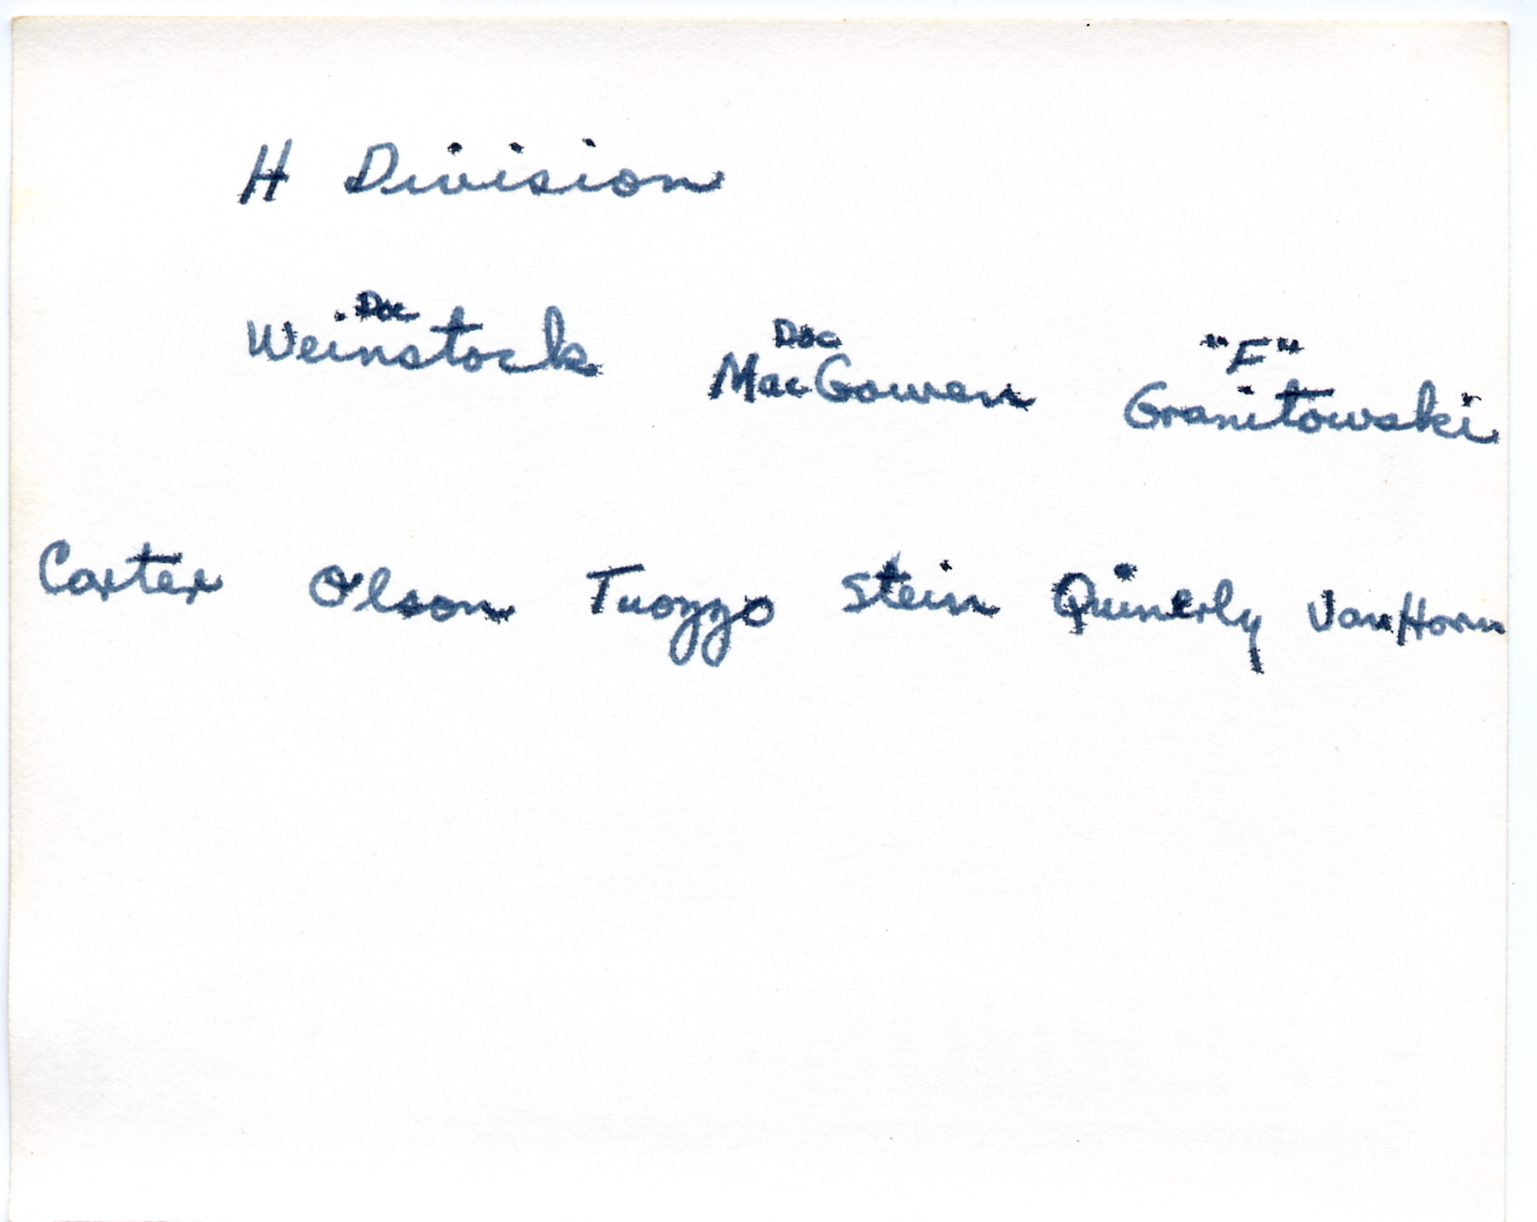 H Division
Doc Doc "F"
Weinstock MacGowen Granitowski
Carter Olson Tuozzo Stein Quinerly VanHorn